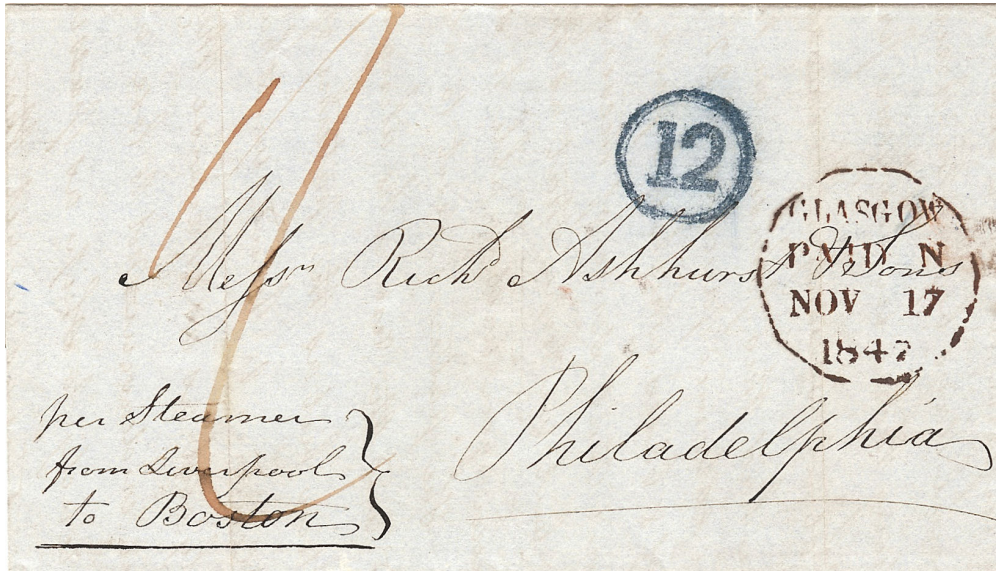 12
GLASGOW
PAID N
NOV 17
1847
Messrs Richd Ashhurst & Sons
Philadelphia
per Steamer
from Liverpool
to Boston